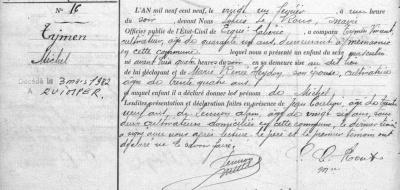 N° 16
Eymen
Michel
Décédé le 3 mars 1982
A QUIMPER.
L'AN mil neuf cent le vingt un février à une heure
du soir devant Nous Louis Le Roux, maire
Officier public de l'État-Civil de Ergué-Gabéric, a comparu Eymen Vincent
cultivateur âgé de quarante un ans, demeurant à
en cette commune lequel nous a présenté un enfant du sexe masculin
né avant hier à heures du au dit lieu
de lui déclarant et de Marie Renée Heydon, son épouse, cultivatrice
âgée de trente quatre ans
et auquel enfant il a déclaré donner le prénom de Michel.
Lesdites présentation et déclaration faites en présence de Jean âgé de trente
neuf ans, et âgé de vingt six ans, tous
deux cultivateurs domiciliés en cette commune, le dernier témoin
a signé avec nous après lecture, le père et le premier témoin ont
déclaré ne le savoir faire.
L. Le Roux